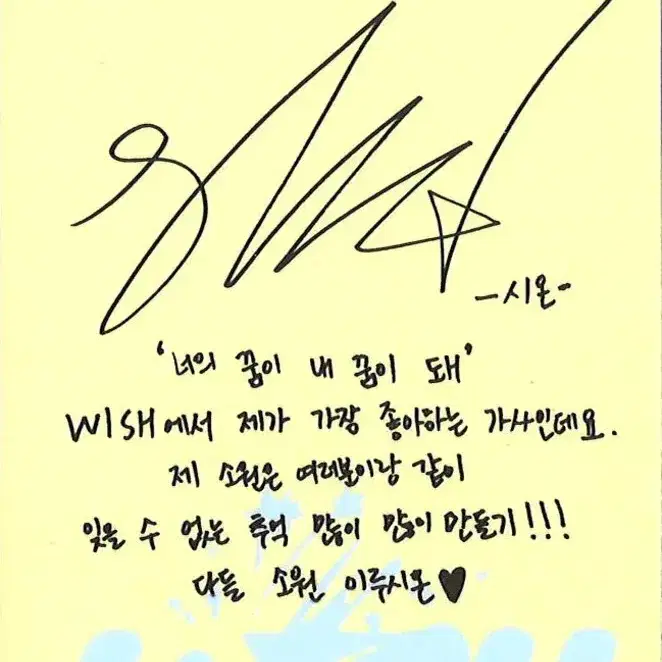 -시온-
'너의 꿈이 내 꿈이 돼'
WISH에서 제가 가장 좋아하는 가사인데요.
제 소원은 여러분이랑 같이
잊을 수 없는 추억 많이 많이 만들기!!!
다들 소원 이루시온♥